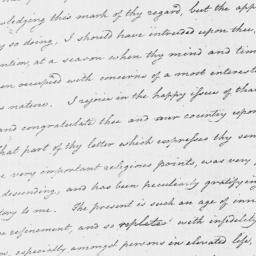 ledging this mark of thy regard, but the app
g so doing, I should have intruded upon thee,
ention, at a season when thy mind and tim
een occupied with concerns of a most interest
s nature. I rejoice in the happy issues of tha
and congratulate thee and our country upon
that part of thy letter which expresses thy sen
e very important religious points, was very
descending, and has been peculiarly gratifying
tory to me. The present is such an age of inno
e refinement, and so replete with infidelity
especially amongst persons in elevated life,